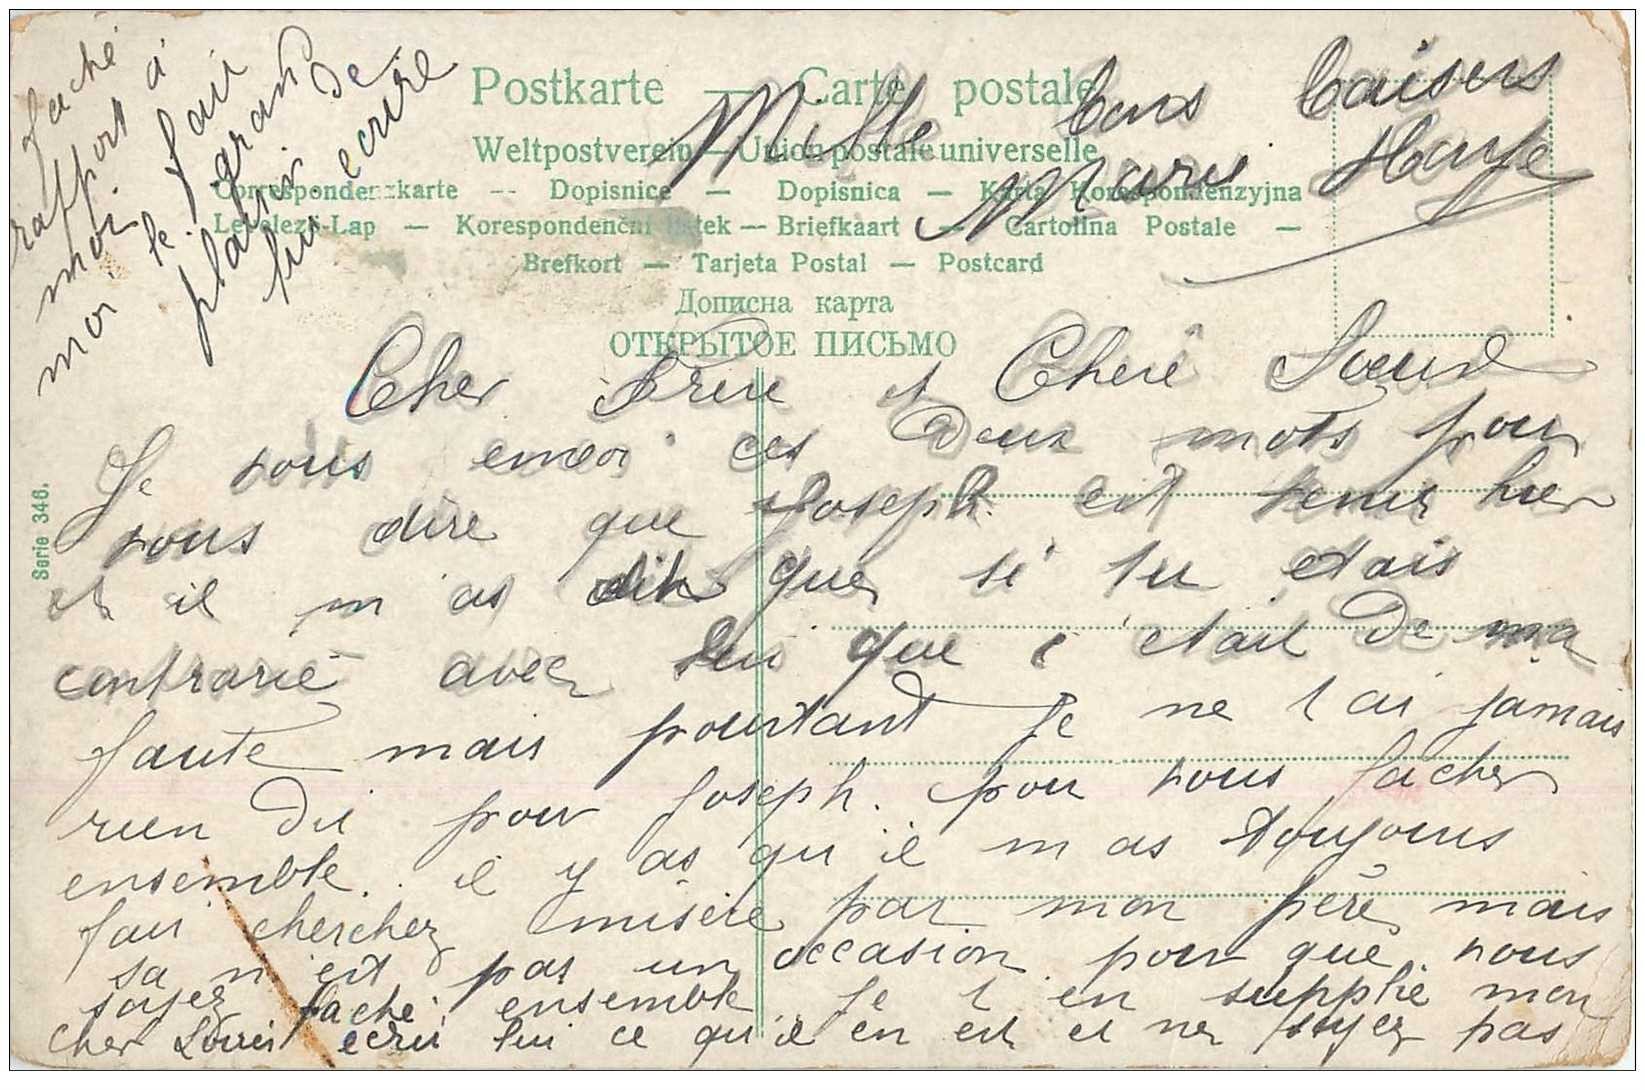 Postkarte — Carte postale
Weltpostverein — Union postale universelle
Correspondenzkarte -- Dopisnice — Dopisnica — Karta Korespondenzyjna
Levelezö-Lap — Korespondenční lístek — Briefkaart — Cartolina Postale —
Brefkort — Tarjeta Postal — Postcard
Дописна карта
ОТКРЫТОЕ ПИСЬМО
Serie 346.
Cher Frere et Cherè Soeur
Je vous envoi ces deux mots pour
vous dire que Joseph est venu hier
et il m as dit que si tu etais
contrarié avec lui que c'etait de ma
faute mais pourtant je ne t ai jamais
rien dit pour Joseph. pour vous facher
ensemble. il y as qu'il m as toujours
fair cherchez misère par mon père mais
sa n'est pas un occasion pour que vous
soyez faché ensemble Je t en supplie mon
cher Louis ecrit lui ce qu'il en est et ne soyez pas
faché
rapport à
moi. fair
moi le grand
plaisir de
lui ecrire
Mille bons baisers
Marie